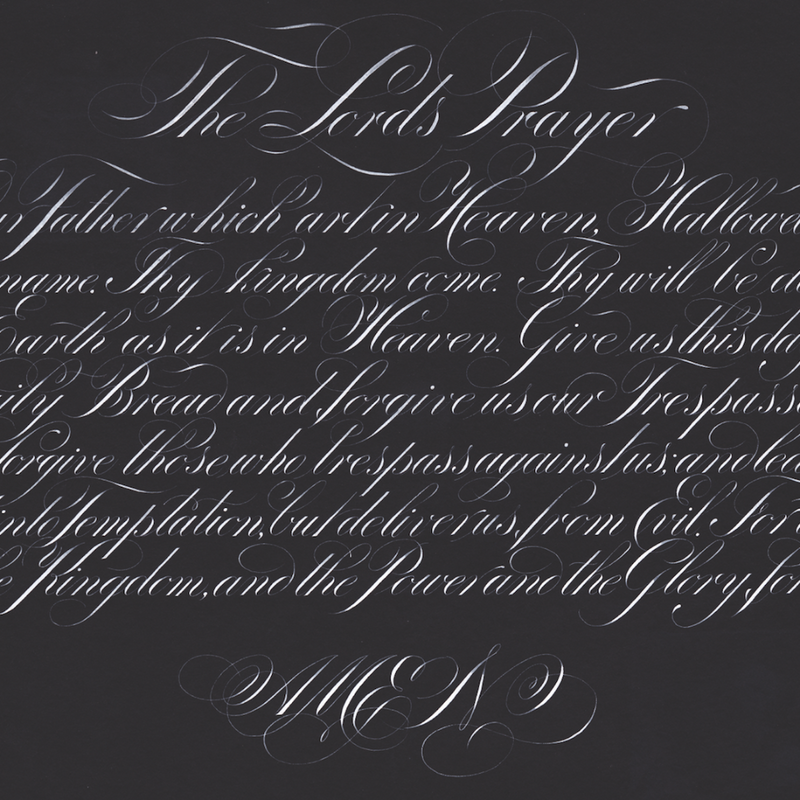 The Lords Prayer
ur Father which art in Heaven, Hallowe
name. Thy kingdom come. Thy will be d
Earth as it is in Heaven. Give us this da
ily Bread and forgive us our Trespass
forgive those who trespass against us; and lea
into Temptation, but deliver us, from Evil. For
e Kingdom, and the Power and the Glory, for
AMEN